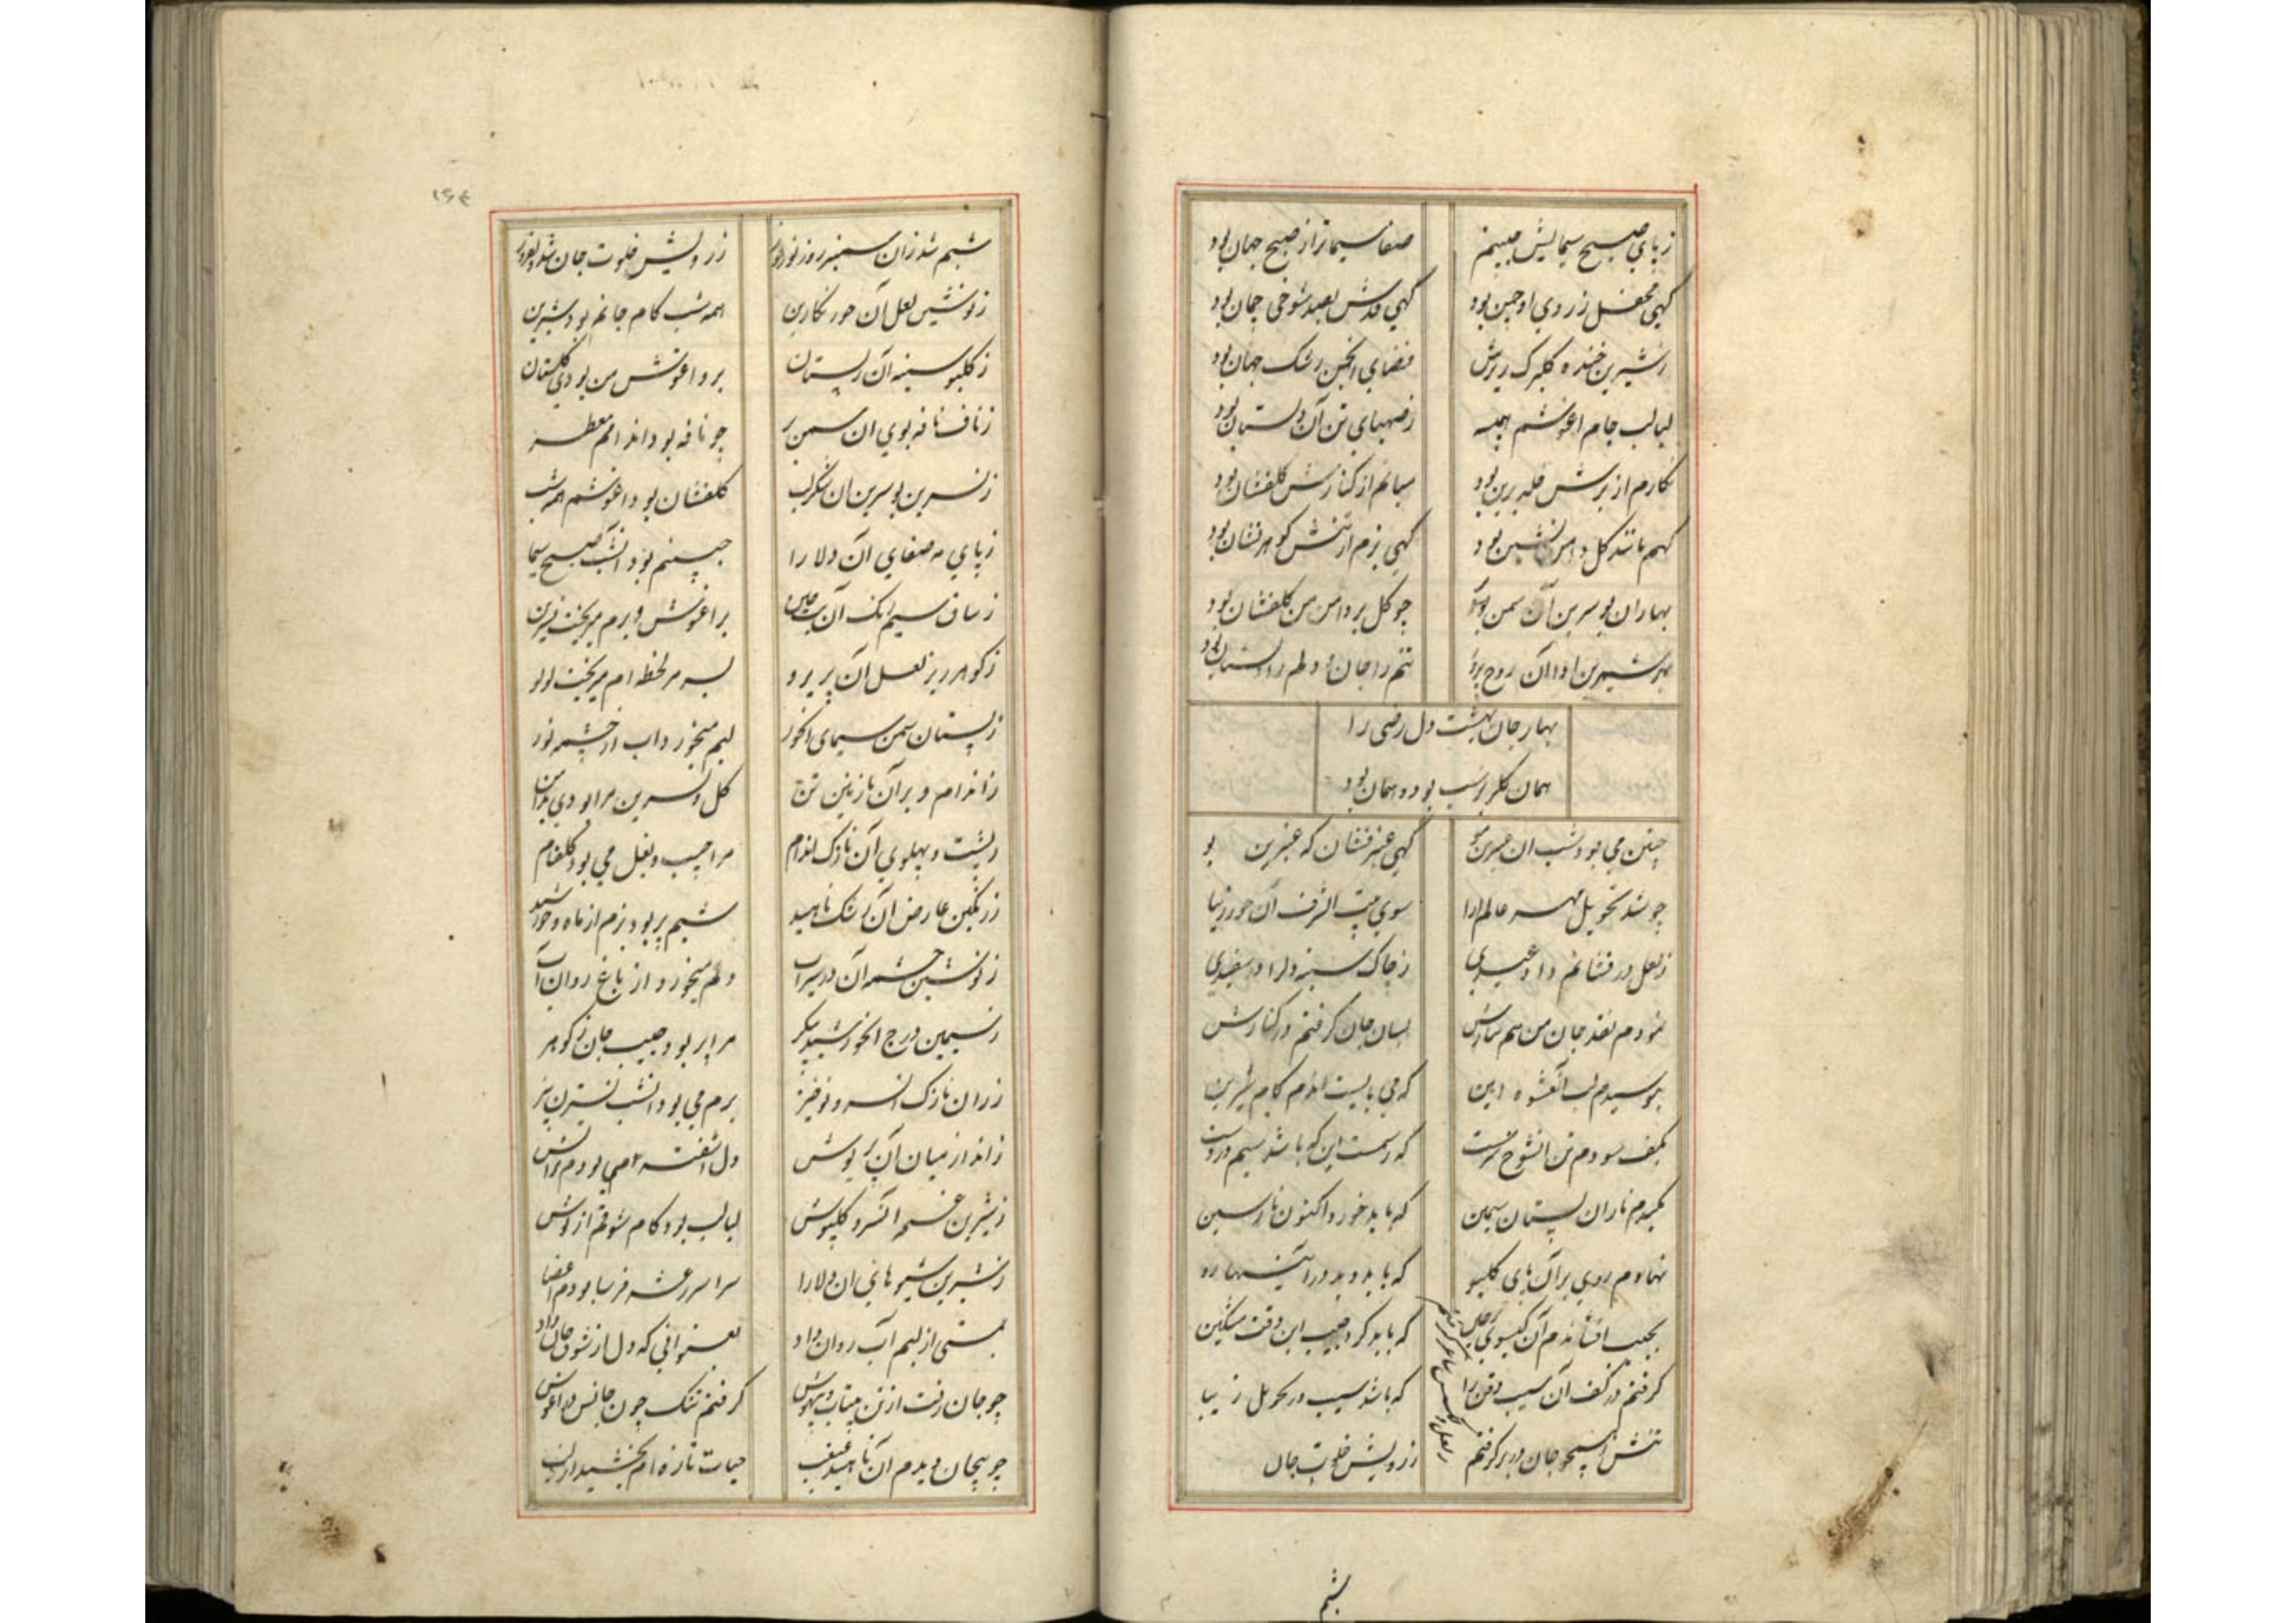 ز پای صبح سیمایش جبینم صفا سیماتر از صبح جهان بود
کهی محفل ز روی او چمن بود کهی قدش بصد شوخی چمان بود
ز شیرین خنده کلبرک ریزش فضای انجمن رشک جهان بود
لبالب جام اغوشم همه ز صهبای تن آن دلستان بود
کنارم از برش خلد برین بود میانم از کنارش کلفشان بود
کهم مانند کل دامن نشین بود کهی بزم از تنش کوهرفشان بود
بهاران بو سرین آن سمن چو کل بر دامن من کلفشان بود
شیرین ادا آن روح تنم را جان و دلم را دلستان بود
بهار جان بهشت دل رضی را
همان کلبرک شب بود و همان بود
چنین می بود شب ان عنبرین مو کهی عنبر فشان که عنبرین بو
چو شد تحویل مهر عالم ارا سوی بیت الشرف آن حور زیبا
ز لعل در فشانم داد عیدی ز چاک سینه دلرا در سفیدی
نمودم نقد جان من هم نثارش بسان جان کرفتم در کنارش
بوسیدم لب آنعشوه ایین که می بایست اندم کام شیرین
بکف سودم تن انشوخ سرمست که رسمست این که باشد سیم در دست
مکیدم ناران پستان سیمین که باید خورد اکنون نار سیمین
نهادم روی بر آن پای کلبو که باید دید در آیینها رو
بجیب افشاندم آن کیسوی که باید کرد جیب این وقت مشکین
کرفتم در کف آن سیب ذقن را که باشد سیب در تحویل زیبا
تنش همچو جان در بر کرفتم ز رویش خلوت جان
شبم
۱۶۴
شبم شد زان سمنبر روز نوروز ز رویش خلوت جان شد
ز نوشین لعل آن حور نکارین همه شب کام جانم بود شیرین
ز کلبو سینه آن پستان بر و اغوش من بودی کلستان
ز ناف نافه بوی ان سمن بر چو نافه بود اندامم معطر
ز نسرین بو سرین ان شکر لب کلفشان بود اغوشم همه شب
ز پای مه صفای ان دلارا جبینم بود انشب صبح سیما
ز ساق سیم رنک آن بر اغوش و برم میریخت نسرین
ز کوهر ریز لعل آن پریرو بسر هر لحظه ام میریخت لولو
ز پستان سمن سیمای انحور لبم میخورد اب از چشمه نور
ز اندام و بر آن نازنین تن کل و نسرین مرا بودی بدامن
ز پشت و پهلوی آن نازک اندام مرا جیب و بغل می بود کلفام
ز رنکین عارض ان رشک ناهید شبم پر بود بزم از ماه و خورشید
ز نوشین چشمه آن در سیراب دلم میخورد از باغ روان آب
ز سیمین درج انخورشید پیکر مرا پر بود جیب جان ز کوهر
ز ران نازک انسرو نوخیز برم می بود انشب نسترن بیز
ز انداز میان آن دل اشفته می بودم بر انش
ز شیرین انسرو کلپوش لبالب بود کام شوقم از نوش
ز شیرین شیوهای ان دلارا سراسر رعشه فرسا بودم اعضا
بمستی از لبم آب روان داد بعنوانی که دل از شوق جان داد
چو جان رفت از تن بیتاب و بیهوش کرفتم تنک چون جانش در اغوش
چو بیجان دیدم آن ناهید غبغب حیات تازه ام بخشید از لب